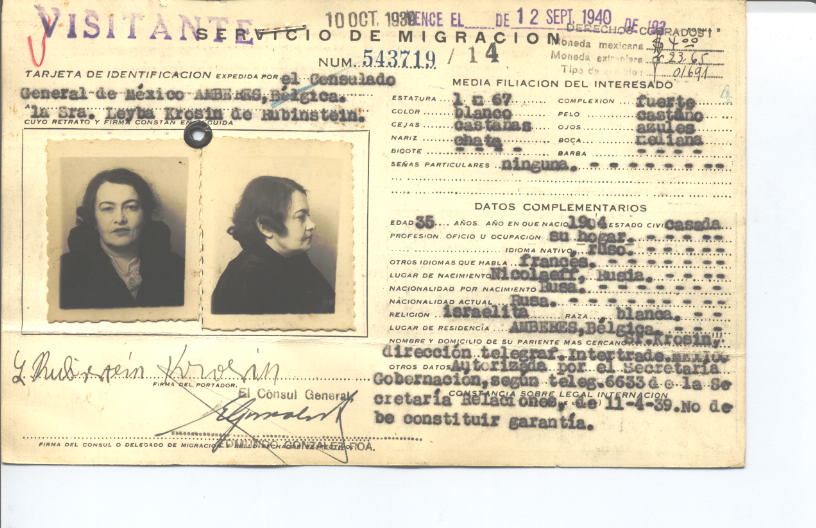 VISITANTE
10 OCT. 1939
VENCE EL DE 12 SEPT. 1940 DE 193
SERVICIO DE MIGRACION
DERECHOS COBRADOS
Moneda mexicana $ 4.00
Moneda extranjera 23.65
Tipo de cambio
NUM. 543719 / 14
TARJETA DE IDENTIFICACION EXPEDIDA POR el Consulado
General de México AMBERES, Bélgica.
A la Sra. Leyba Krosin de Rubinstein.
CUYO RETRATO Y FIRMA CONSTAN EN SEGUIDA
MEDIA FILIACION DEL INTERESADO
ESTATURA 1 m 67 COMPLEXION fuerte
COLOR blanco PELO castaño
CEJAS castañas OJOS azules
NARIZ chata BOCA mediana
BIGOTE - - - - BARBA - - - -
SEÑAS PARTICULARES ninguna. - - - - - - -
DATOS COMPLEMENTARIOS
EDAD 35 AÑOS. AÑO EN QUE NACIO 1904 ESTADO CIVIL casada
PROFESION, OFICIO U OCUPACION su hogar. - - - - -
IDIOMA NATIVO, ruso. - - - -
OTROS IDIOMAS QUE HABLA francés - - - - -
LUGAR DE NACIMIENTO Nicolaeff, Rusia. - - -
NACIONALIDAD POR NACIMIENTO Rusa. - - - - - -
NACIONALIDAD ACTUAL Rusa. - - - - - - -
RELIGION israelita RAZA blanca. - -
LUGAR DE RESIDENCIA AMBERES, Bélgica - - -
NOMBRE Y DOMICILIO DE SU PARIENTE MAS CERCANO Krosin,
dirección telegraf. Intertrade. MEXICO
OTROS DATOS Autorizada por el Secretaría
Gobernación, según teleg. 6633 de la Se
CONSTANCIA SOBRE LEGAL INTERNACION
cretaría Relaciones, de 11-4-39. No de
be constituir garantía.
L. Rubinstein Krosin
FIRMA DEL PORTADOR.
El Consul General
FIRMA DEL CONSUL O DELEGADO DE MIGRACION